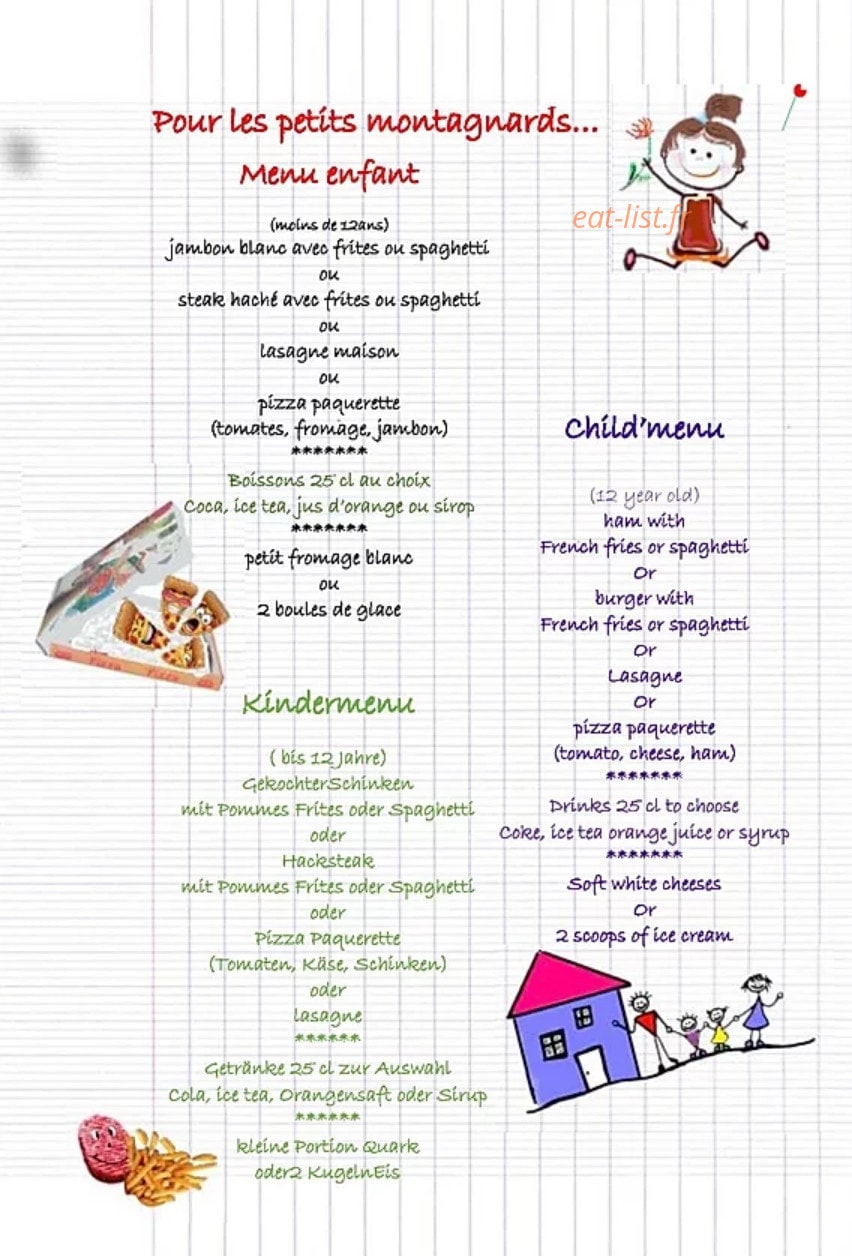 Pour les petits montagnards...
Menu enfant
eat-list.fr
(moins de 12ans)
jambon blanc avec frites ou spaghetti
ou
steak haché avec frites ou spaghetti
ou
lasagne maison
ou
pizza paquerette
(tomates, fromage, jambon)
*******
Boissons 25 cl au choix
Coca, ice tea, jus d'orange ou sirop
*******
petit fromage blanc
ou
2 boules de glace
Child'menu
(12 year old)
ham with
French fries or spaghetti
Or
burger with
French fries or spaghetti
Or
Lasagne
Or
pizza paquerette
(tomato, cheese, ham)
*******
Drinks 25 cl to choose
Coke, ice tea orange juice or syrup
*******
Soft white cheeses
Or
2 scoops of ice cream
Pizza
Kindermenu
( bis 12 Jahre)
GekochterSchinken
mit Pommes Frites oder Spaghetti
oder
Hacksteak
mit Pommes Frites oder Spaghetti
oder
Pizza Paquerette
(Tomaten, Käse, Schinken)
oder
lasagne
******
Getränke 25 cl zur Auswahl
Cola, ice tea, Orangensaft oder Sirup
******
kleine Portion Quark
oder2 KugelnEis